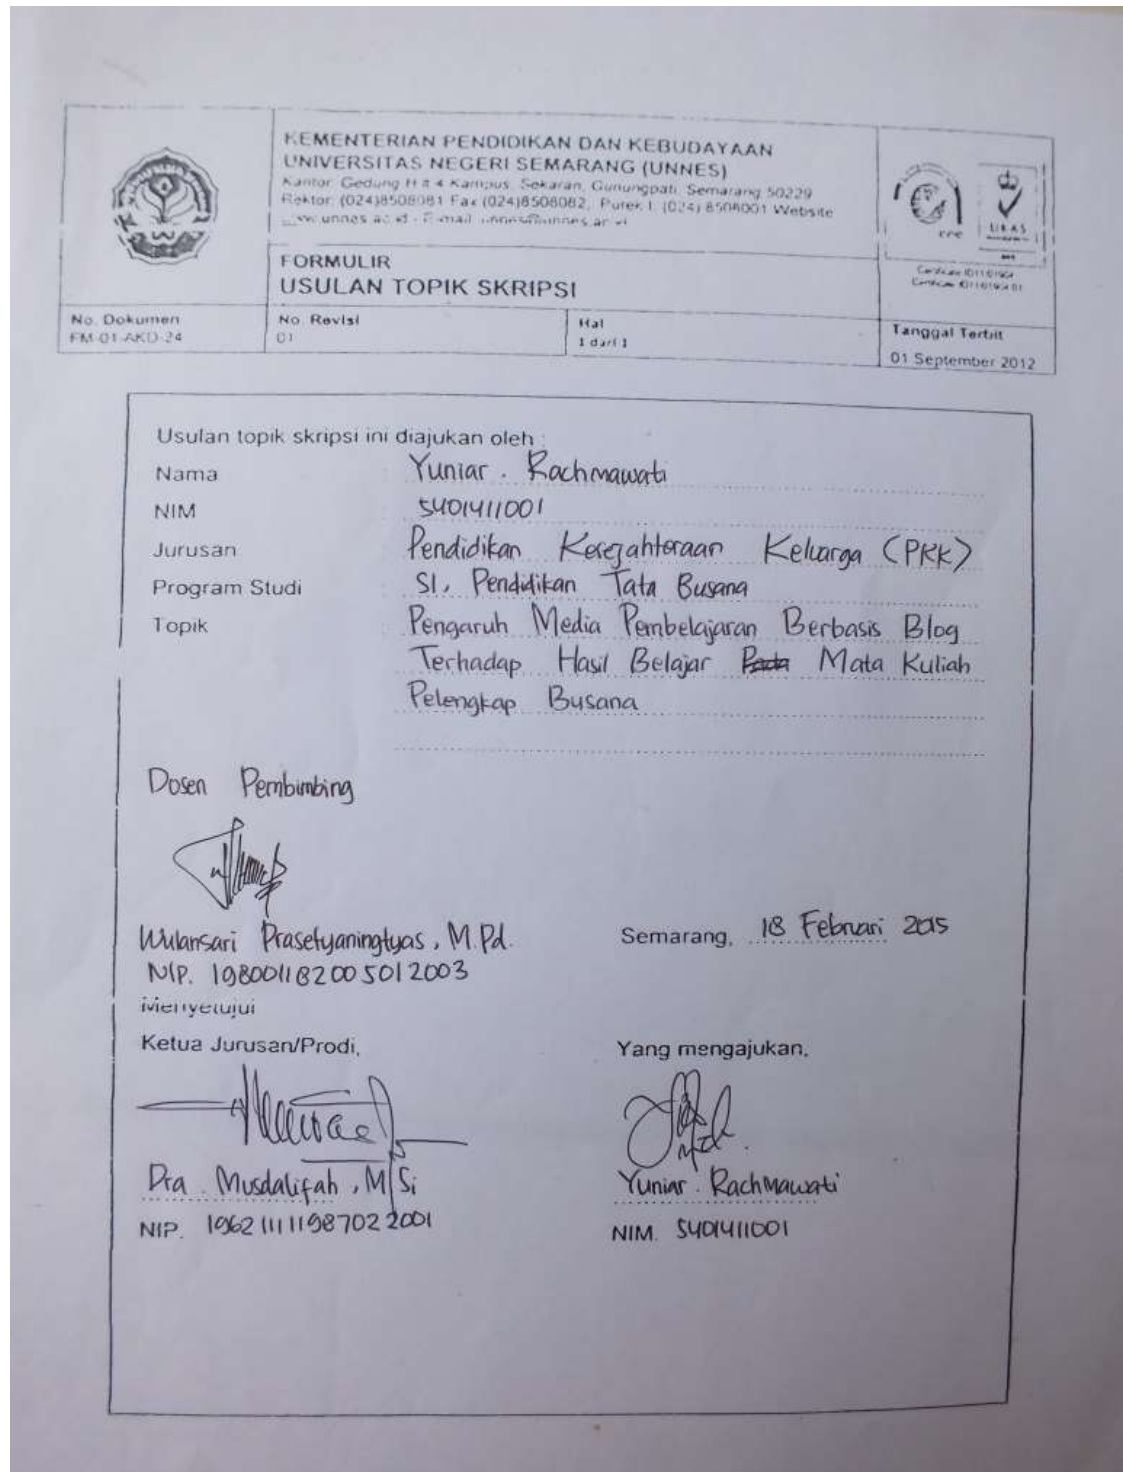 KEMENTERIAN PENDIDIKAN DAN KEBUDAYAAN
UNIVERSITAS NEGERI SEMARANG (UNNES)
Kantor: Gedung H lt 4 Kampus Sekaran, Gunungpati, Semarang 50229
Rektor: (024)8508081 Fax (024)8508082, Purek I: (024) 8508001 Website
FORMULIR
USULAN TOPIK SKRIPSI
UKAS
No. Dokumen
FM-01-AKD-24
No. Revisi
01
Hal
1 dari 1
Tanggal Terbit
01 September 2012
Usulan topik skripsi ini diajukan oleh :
Nama Yuniar . Rachmawati
NIM 5401411001
Jurusan Pendidikan Kesejahteraan Keluarga (PKK)
Program Studi S1, Pendidikan Tata Busana
Topik Pengaruh Media Pembelajaran Berbasis Blog
Terhadap Hasil Belajar Pada Mata Kuliah
Pelengkap Busana
Dosen Pembimbing
Wulansari Prasetyaningtyas, M.Pd.
NIP. 198001182005012003
Semarang, 18 Februari 2015
Menyetujui
Ketua Jurusan/Prodi,
Yang mengajukan,
Dra . Musdalifah , M Si
NIP. 196211111987022001
Yuniar . Rachmawati
NIM. 5401411001